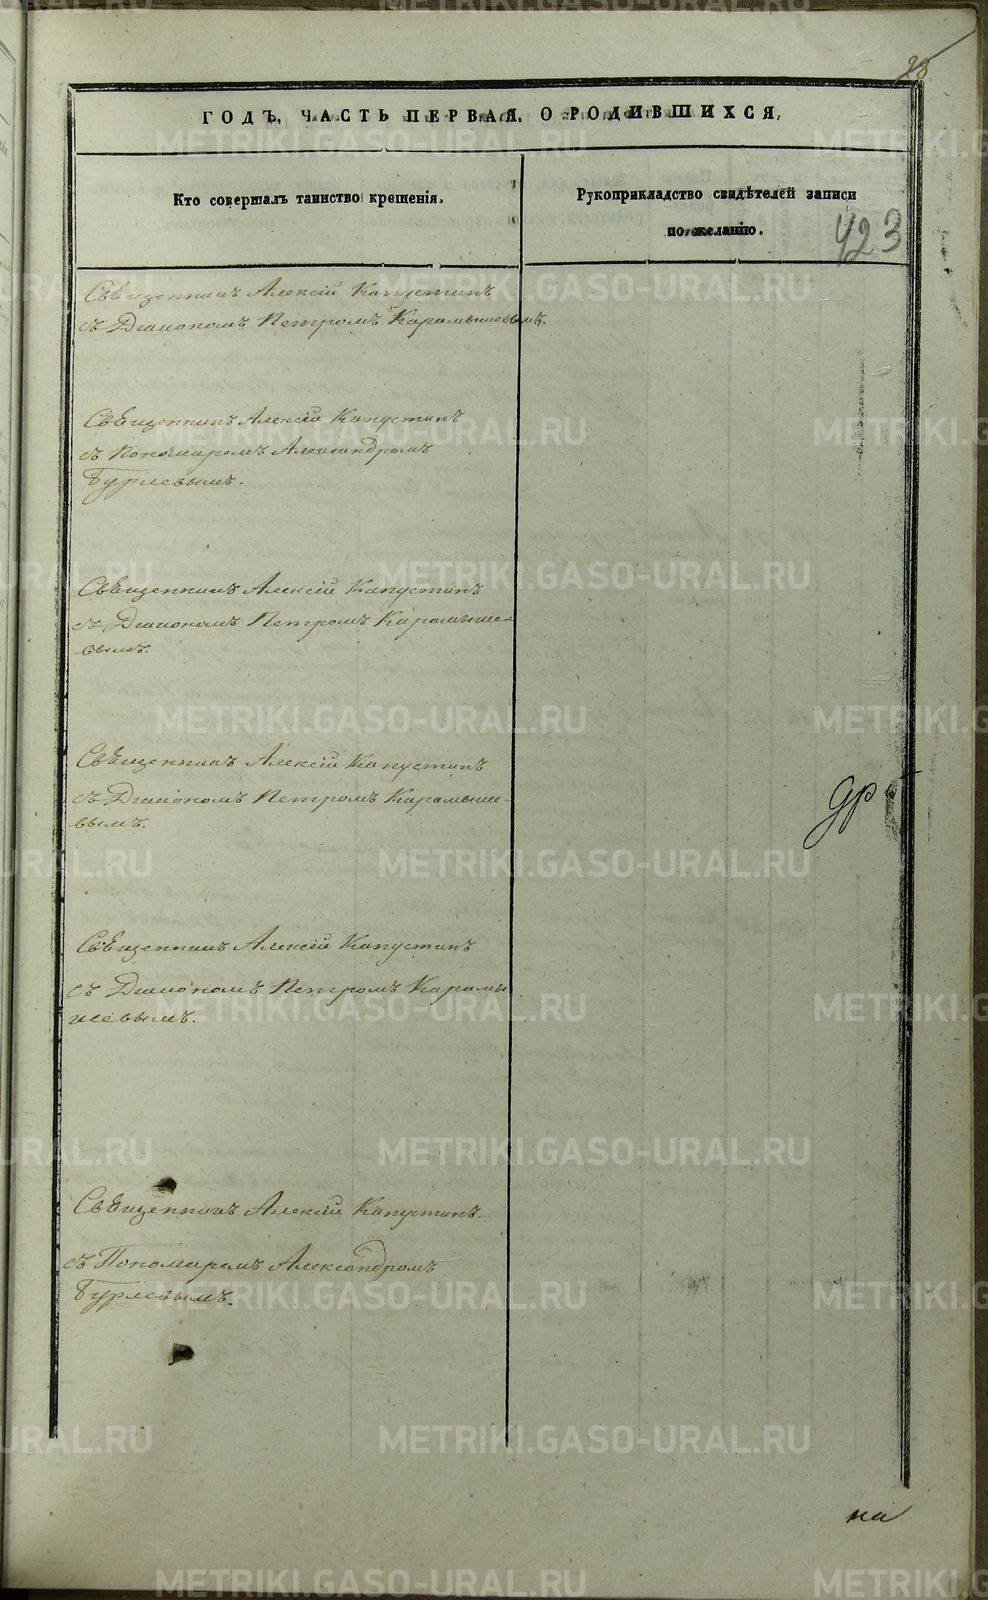 ГОДЪ, ЧАСТЬ ПЕРВАЯ, О РОДИВШИХСЯ,
Кто совершалъ таинство крещенія.
Рукоприкладство свидѣтелей записи
по желанію.
423
Священникъ Алексій Капустинъ
съ Діакономъ Петромъ Карамышевымъ.
Священникъ Алексій Капустинъ
съ Пономаремъ Александромъ
Бурлевымъ.
Священникъ Алексій Капустинъ
съ Діакономъ Петромъ Карамыше-
вымъ.
Священникъ Алексій Капустинъ
съ Діакономъ Петромъ Карамыше-
вымъ.
Священникъ Алексій Капустинъ
съ Діакономъ Петромъ Карамы
шевымъ.
Священникъ Алексій Капустинъ
съ Пономаремъ Александромъ
Бурлевымъ.
на
METRIKI.GASO-URAL.RU